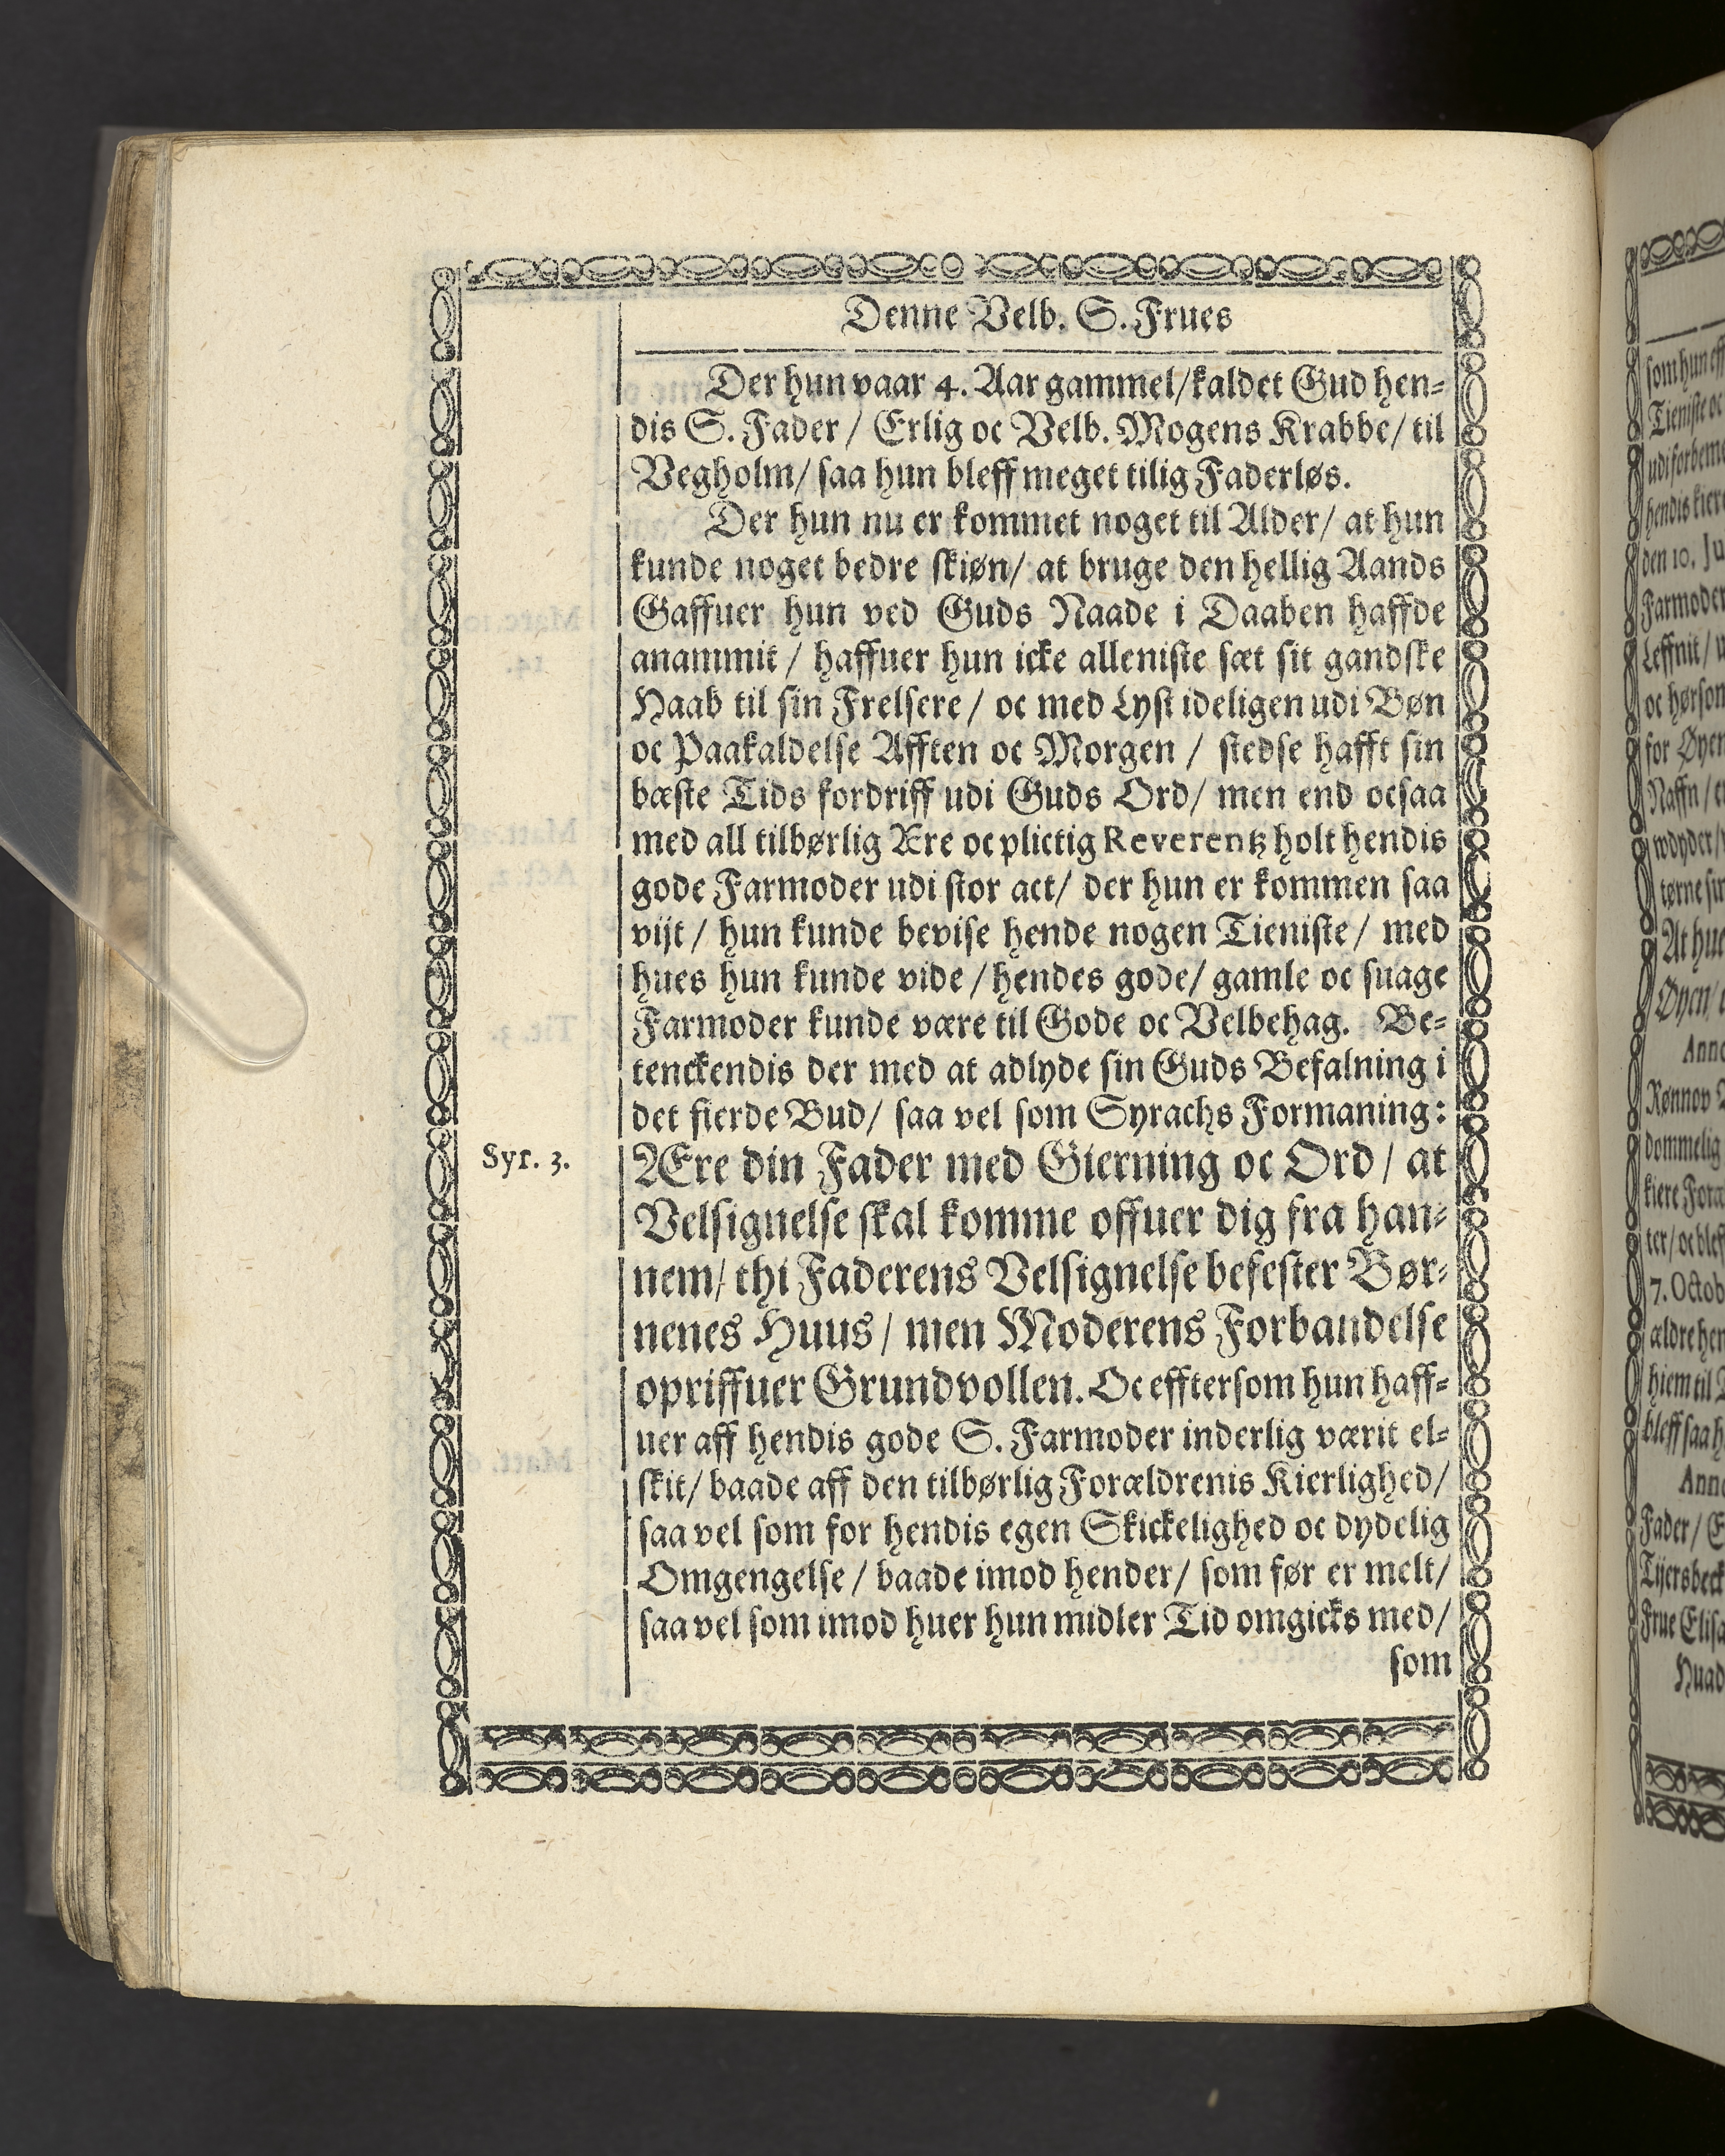 Denne Velb. S. Frues
Der hun vaar 4. Aar gammel/ kaldet Gud hen-
dis S. Fader / Erlig oc Velb. Mogens Krabbe/ til
Vegholm/ saa hun bleff meget tilig Faderløs.
Der hun nu er kommet noget til Alder/ at hun
kunde noget bedre skiøn/ at bruge den hellig Aands
Gaffuer hun ved Guds Naade i Daaben haffde
anammit / haffuer hun icke alleniste sæt sit gandske
Haab til sin Frelsere / oc med Lyst ideligen udi Bøn
oc Paakaldelse Afften oc Morgen / stedse hafft sin
bæste Tids fordriff udi Guds Ord/ men end ocsaa
med all tilbørlig Ære oc plictig Reverentz holt hendis
gode Farmoder udi stor act/ der hun er kommen saa
vijt / hun kunde bevise hende nogen Tieniste/ med
hues hun kunde vide / hendes gode/ gamle oc suage
Farmoder kunde være til Gode oc Velbehag. Be-
tenckendis der med at adlyde sin Guds Befalning i
det fierde Bud/ saa vel som Syrachs Formaning:
Syr. 3.
Ære din Fader med Gierning oc Ord / at
Velsignelse skal komme offuer dig fra han-
nem/ thi Faderens Velsignelse befester Bør-
nenes Huus / men Moderens Forbandelse
opriffuer Grundvollen. Oc efftersom hun haff-
uer aff hendis gode S. Farmoder inderlig værit el-
skit/ baade aff den tilbørlig Forældrenis Kierlighed/
saa vel som for hendis egen Skickelighed oc dydelig
Omgengelse / baade imod hender/ som før er melt/
saa vel som imod huer hun midler Tid omgicks med/
som
som hun
Tieniste oc
hendis
den 10.
Farmoder
Leffnit/
for
Naffn /
At
Øyen/
Rønnov
dommelig
kiere
7. Octob
bleff saa
Fader/
Tijersbeck
Frue